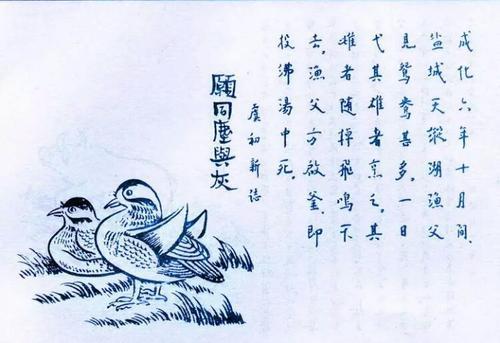 成化六年十月間，
盐城天縱湖漁父
見鴛鴦甚多，一日
弋其雄者烹之，其
雌者随棹飛鳴不
去，漁父方啟釜，即
投沸湯中死。
虞初新誌
願同塵與灰